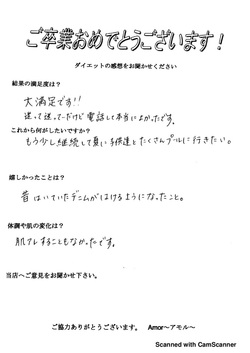 ご卒業おめでとうございます！
ダイエットの感想をお聞かせください
結果の満足度は？
大満足です!!
迷って迷ってだけど電話して本当によかったです。
これから何がしたいですか？
もう少し継続して夏に子供達とたくさんプールに行きたい。
嬉しかったことは？
昔はいていたデニムがはけるようになったこと。
体調や肌の変化は？
肌アレすることもなかったです。
当店へご意見をお聞かせ下さい。
ご協力ありがとうございます。 Amor～アモル～
Scanned with CamScanner